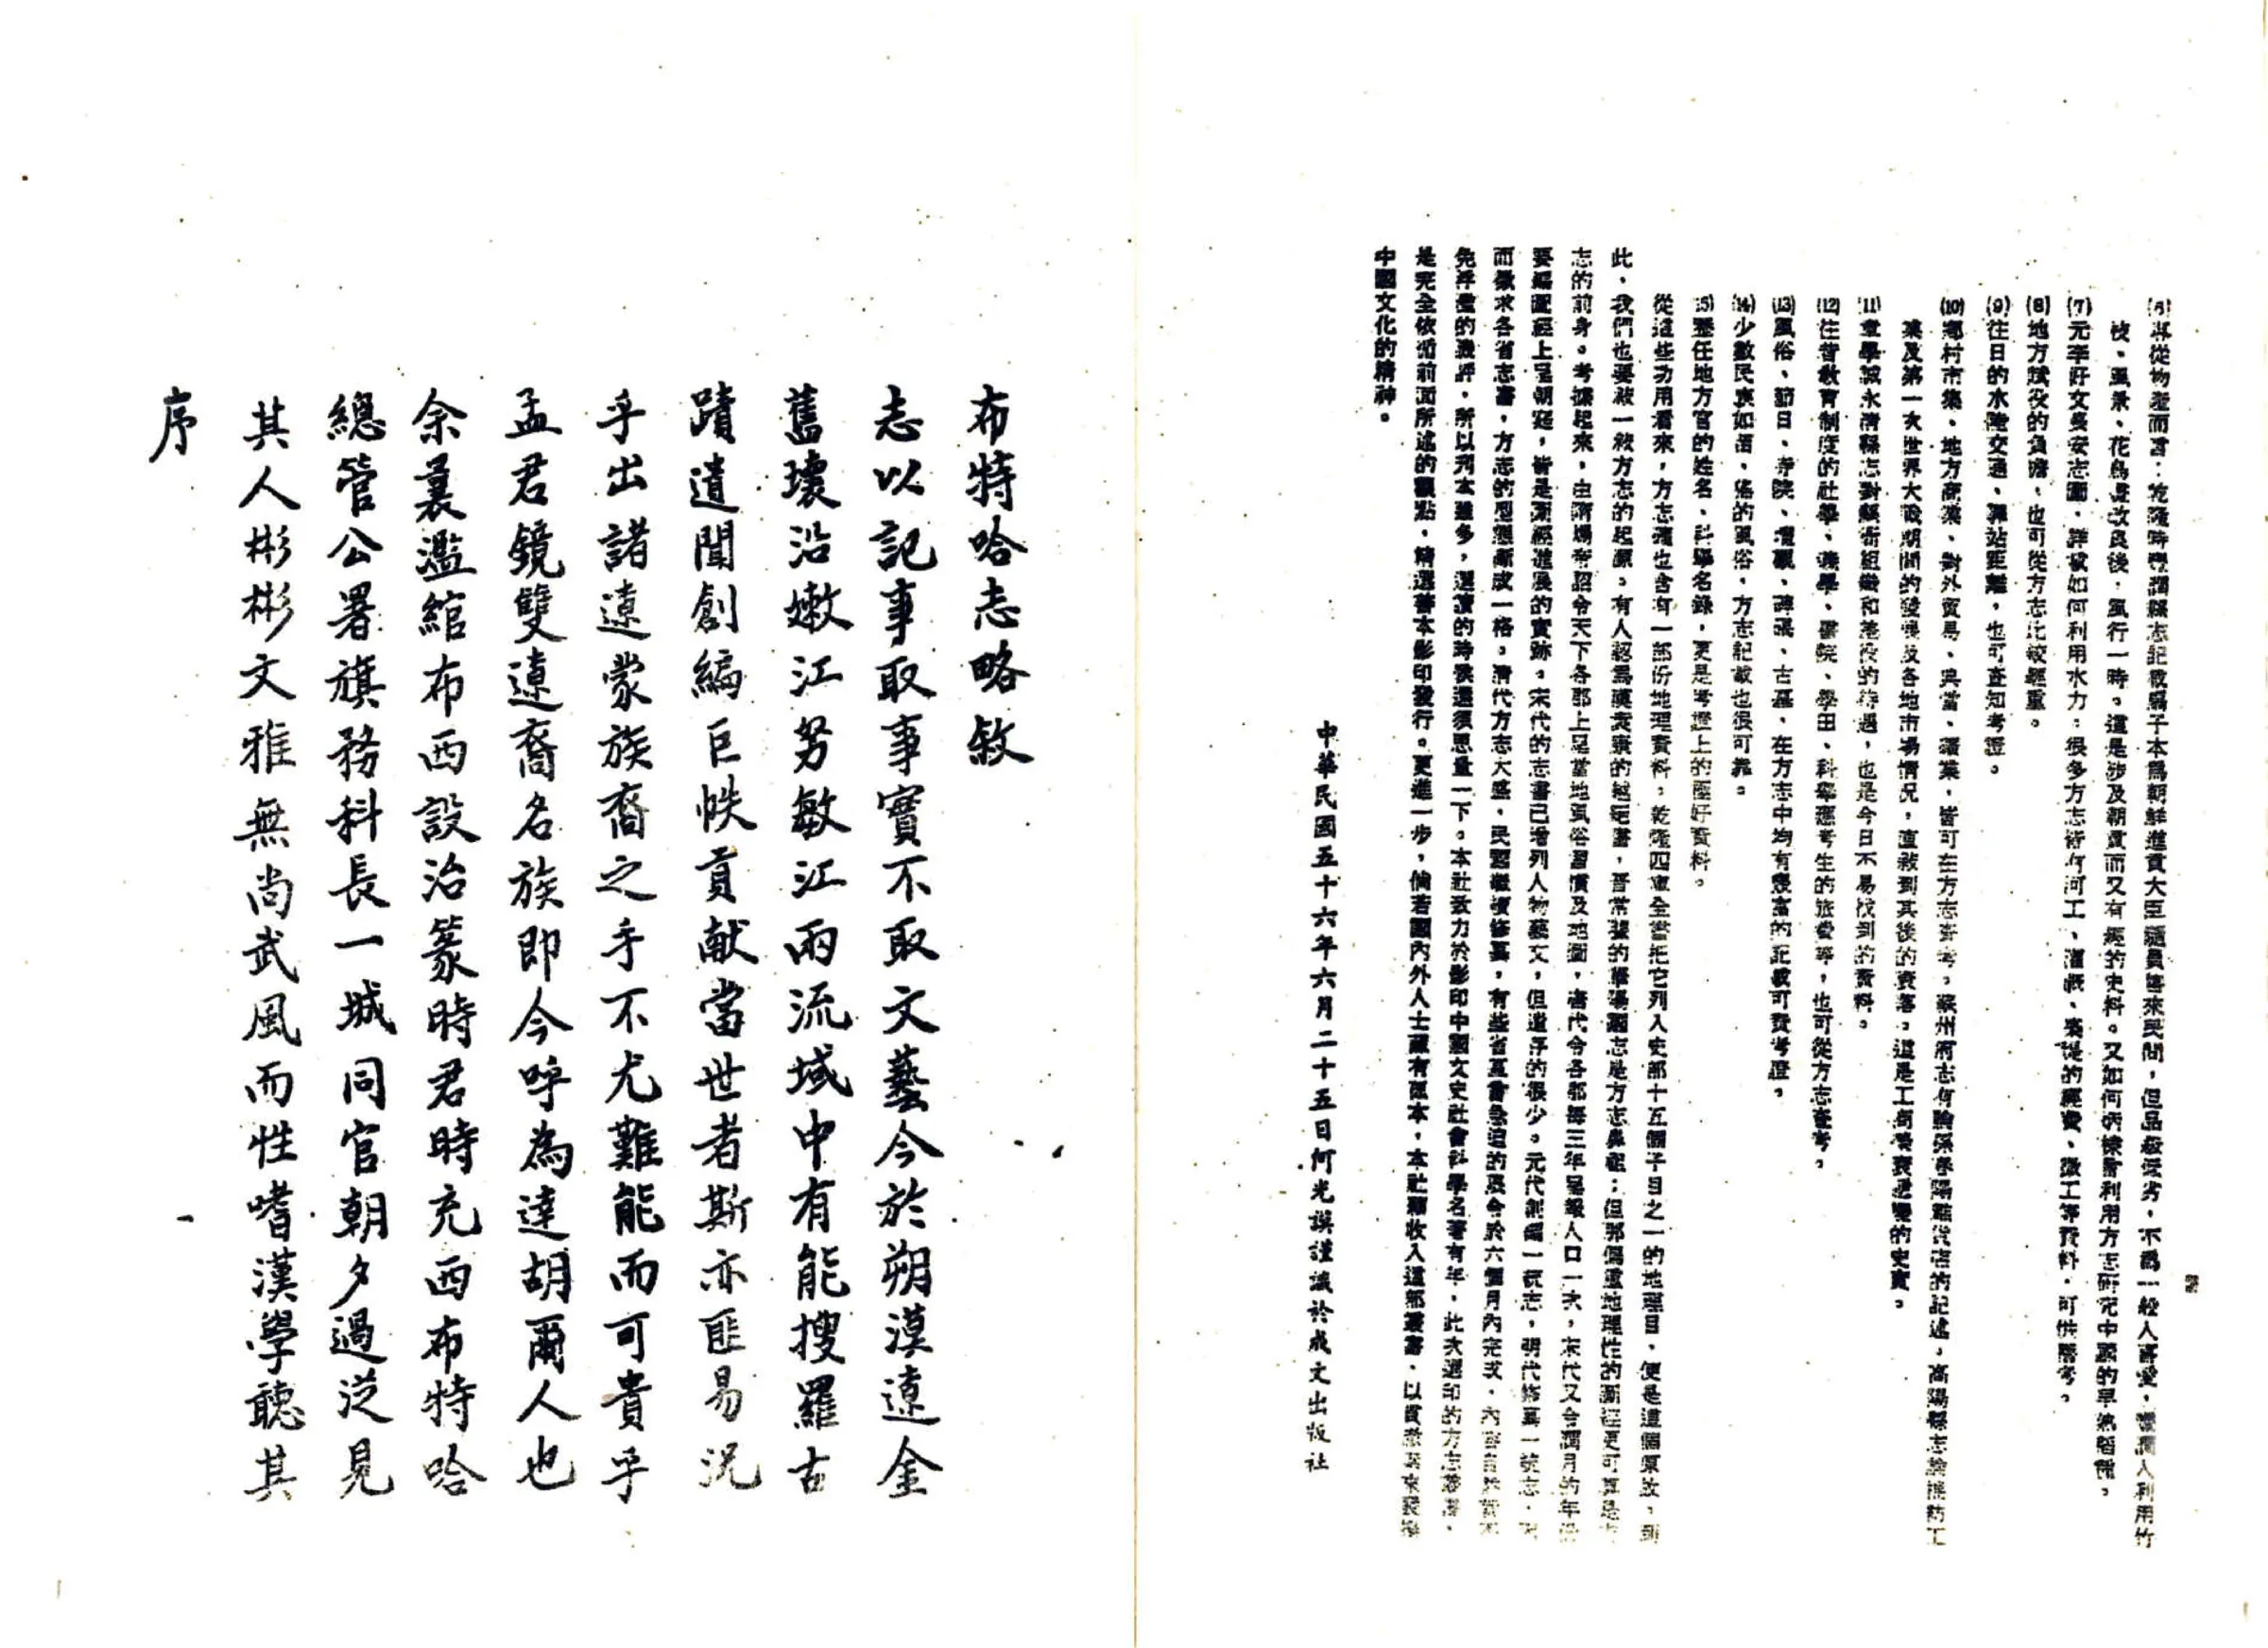 從物產而言：乾隆時豐潤縣志記載扇子本爲朝鮮進貢大臣隨員攜來民間，但品級低劣，不爲一般人喜愛，豐潤人利用竹
枝、風景、花鳥畫改良後，風行一時。這是涉及朝貢而又有經的史料。又如何炳棣曾利用方志研究中國的早熟稻種。
(7)元李好文長安志圖，詳載如何利用水力；很多方志皆有河工、灌溉、築堤的經費，徵工等資料，可供參考。
(8)地方賦役的負擔，也可從方志比較輕重。
(9)往日的水陸交通、驛站距離，也可查知考證。
(10)鄉村市集、地方商業、對外貿易、典當、鹽業，皆可在方志查考。蘇州府志有孫春陽雜貨店的記述，高陽縣志棉紡工
業及第一次世界大戰期間的發展及各地市場情況，直敍到其後的衰落。這是工商業衰變的史實。
(11)章學誠永清縣志對縣衙組織和差役的待遇，也是今日不易找到的資料。
(12)往昔敎育制度的社學、義學、書院、學田、科舉應考生的旅費等，也可從方志查考。
(13)風俗、節日、寺院、壇觀、碑碣、古墓，在方志中均有豐富的記載可資考證。
(14)少數民族如苗、猺的風俗，方志記載也很可靠。
(15)歷任地方官的姓名、科舉名錄，更是考證上的極好資料。
從這些功用看來，方志確也含有一部份地理資料。乾隆四庫全書把它列入史部十五個子目之一的地理目，便是這個原故，到
此，我們也要敍一敍方志的起源。有人認爲漢袁康的越絕書，晉常璩的華陽國志是方志鼻祖；但那偏重地理性的圖經更可算是方
志的前身。考據起來，由隋煬帝詔令天下各郡上呈當地風俗習慣及地圖，唐代令各郡每三年呈報人口一次，宋代又令閏月的年份
要編圖經上呈朝廷，皆是圖經進展的實跡。宋代的志書已增列人物藝文，但遺存的很少。元代創編一統志，明代修纂一統志，
而徵求各省志書，方志的型態漸成一格。清代方志大盛，民國繼續修纂，有些省直會急迫的限令於六個月內完成，內容自然
免浮濫的譏評，所以刊本雖多，選讀的時候還須思量一下。本社致力於影印中國文史社會科學名著有年，此次選印的方志叢書，
是完全依循前面所述的觀點，精選善本影印發行。更進一步，倘若國內外人士藏有孤本，本社願收入這部叢書，以資
中國文化的精神。
中華民國五十六年六月二十五日何光謨謹識於成文出版社
布特哈志略敘
志以記事取事實不取文藝今於朔漠遼金
舊壤沿嫩江努敏江兩流域中有能搜羅古
蹟遺聞創編巨帙貢献當世者斯亦匪易況
乎出諸遼蒙族裔之手不尤難能而可貴乎
孟君鏡雙遼裔名族即今呼為達胡爾人也
余曩濫綰布西設治篆時君時充西布特哈
總管公署旗務科長一城同官朝夕過從見
其人彬彬文雅無尚武風而性嗜漢學聽其
序
一